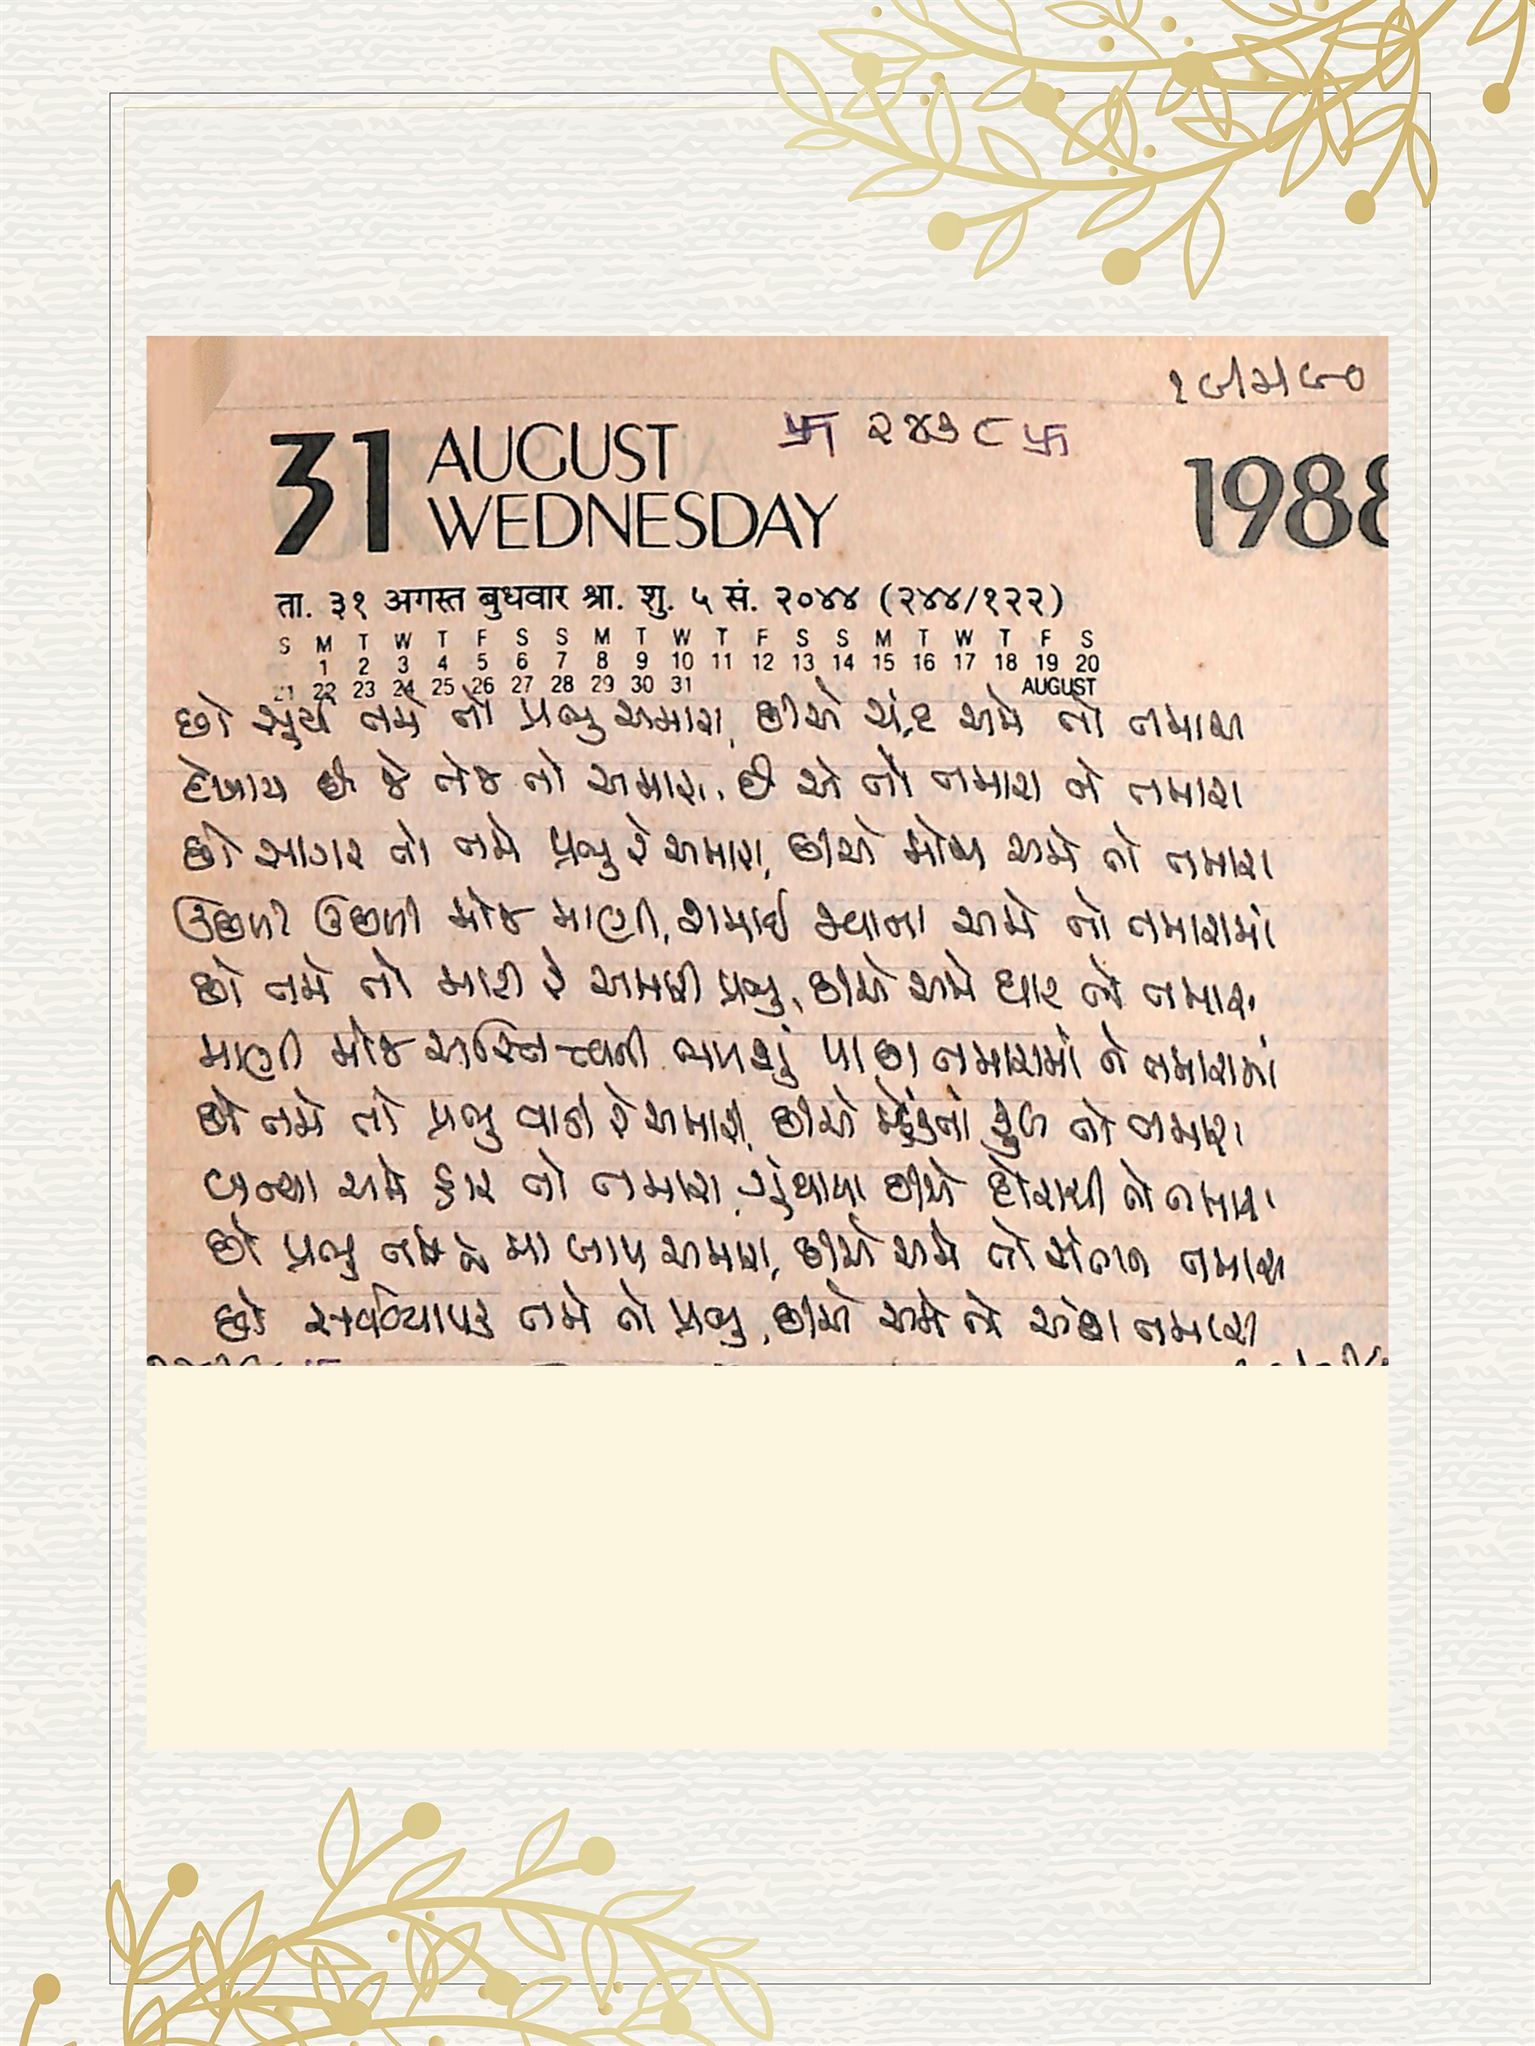 ૨૪૩૮
31 AUGUST
WEDNESDAY
1988
ता. ३१ अगस्त बुधवार श्रा. शु. ५ सं. २०४४ (२४४/१२२)
S M T W T F S S M T W T F S S M T W T F S
1 2 3 4 5 6 7 8 9 10 11 12 13 14 15 16 17 18 19 20
21 22 23 24 25 26 27 28 29 30 31 AUGUST
છો સૂર્ય તમે તો પ્રભુ અમારા, છીએ ચંદ્ર અમે તો તમારા
દેખાય છે જે તેજ તો અમારા, છે એ તો તમારા ને તમારા
છો સાગર તો તમે પ્રભુ રે અમારા, છીએ મોજા અમે તો તમારા
ઉછળી ઉછળી મોજ માણી, શમાઈ જવાના અમે તો તમારામાં
છો તમે તો માટી રે અમારી પ્રભુ, છીએ અમે ઘાટ તો તમારા
માણી મોજ અસ્તિત્વની ભળશું પાછા તમારામાં ને તમારામાં
છો તમે તો પ્રભુ વાડી રે અમારી, છીએ મ્હેંકતાં ફૂલ તો તમારા
બન્યા અમે હાર તો તમારા, ગૂંથાયા છીએ દોરાથી તો તમારા
છો પ્રભુ તમે રે મા બાપ અમારા, છીએ અમે તો સંતાન તમારા
છો સર્વવ્યાપક તમે તો પ્રભુ, છીએ અમે તો અંશ તમારા